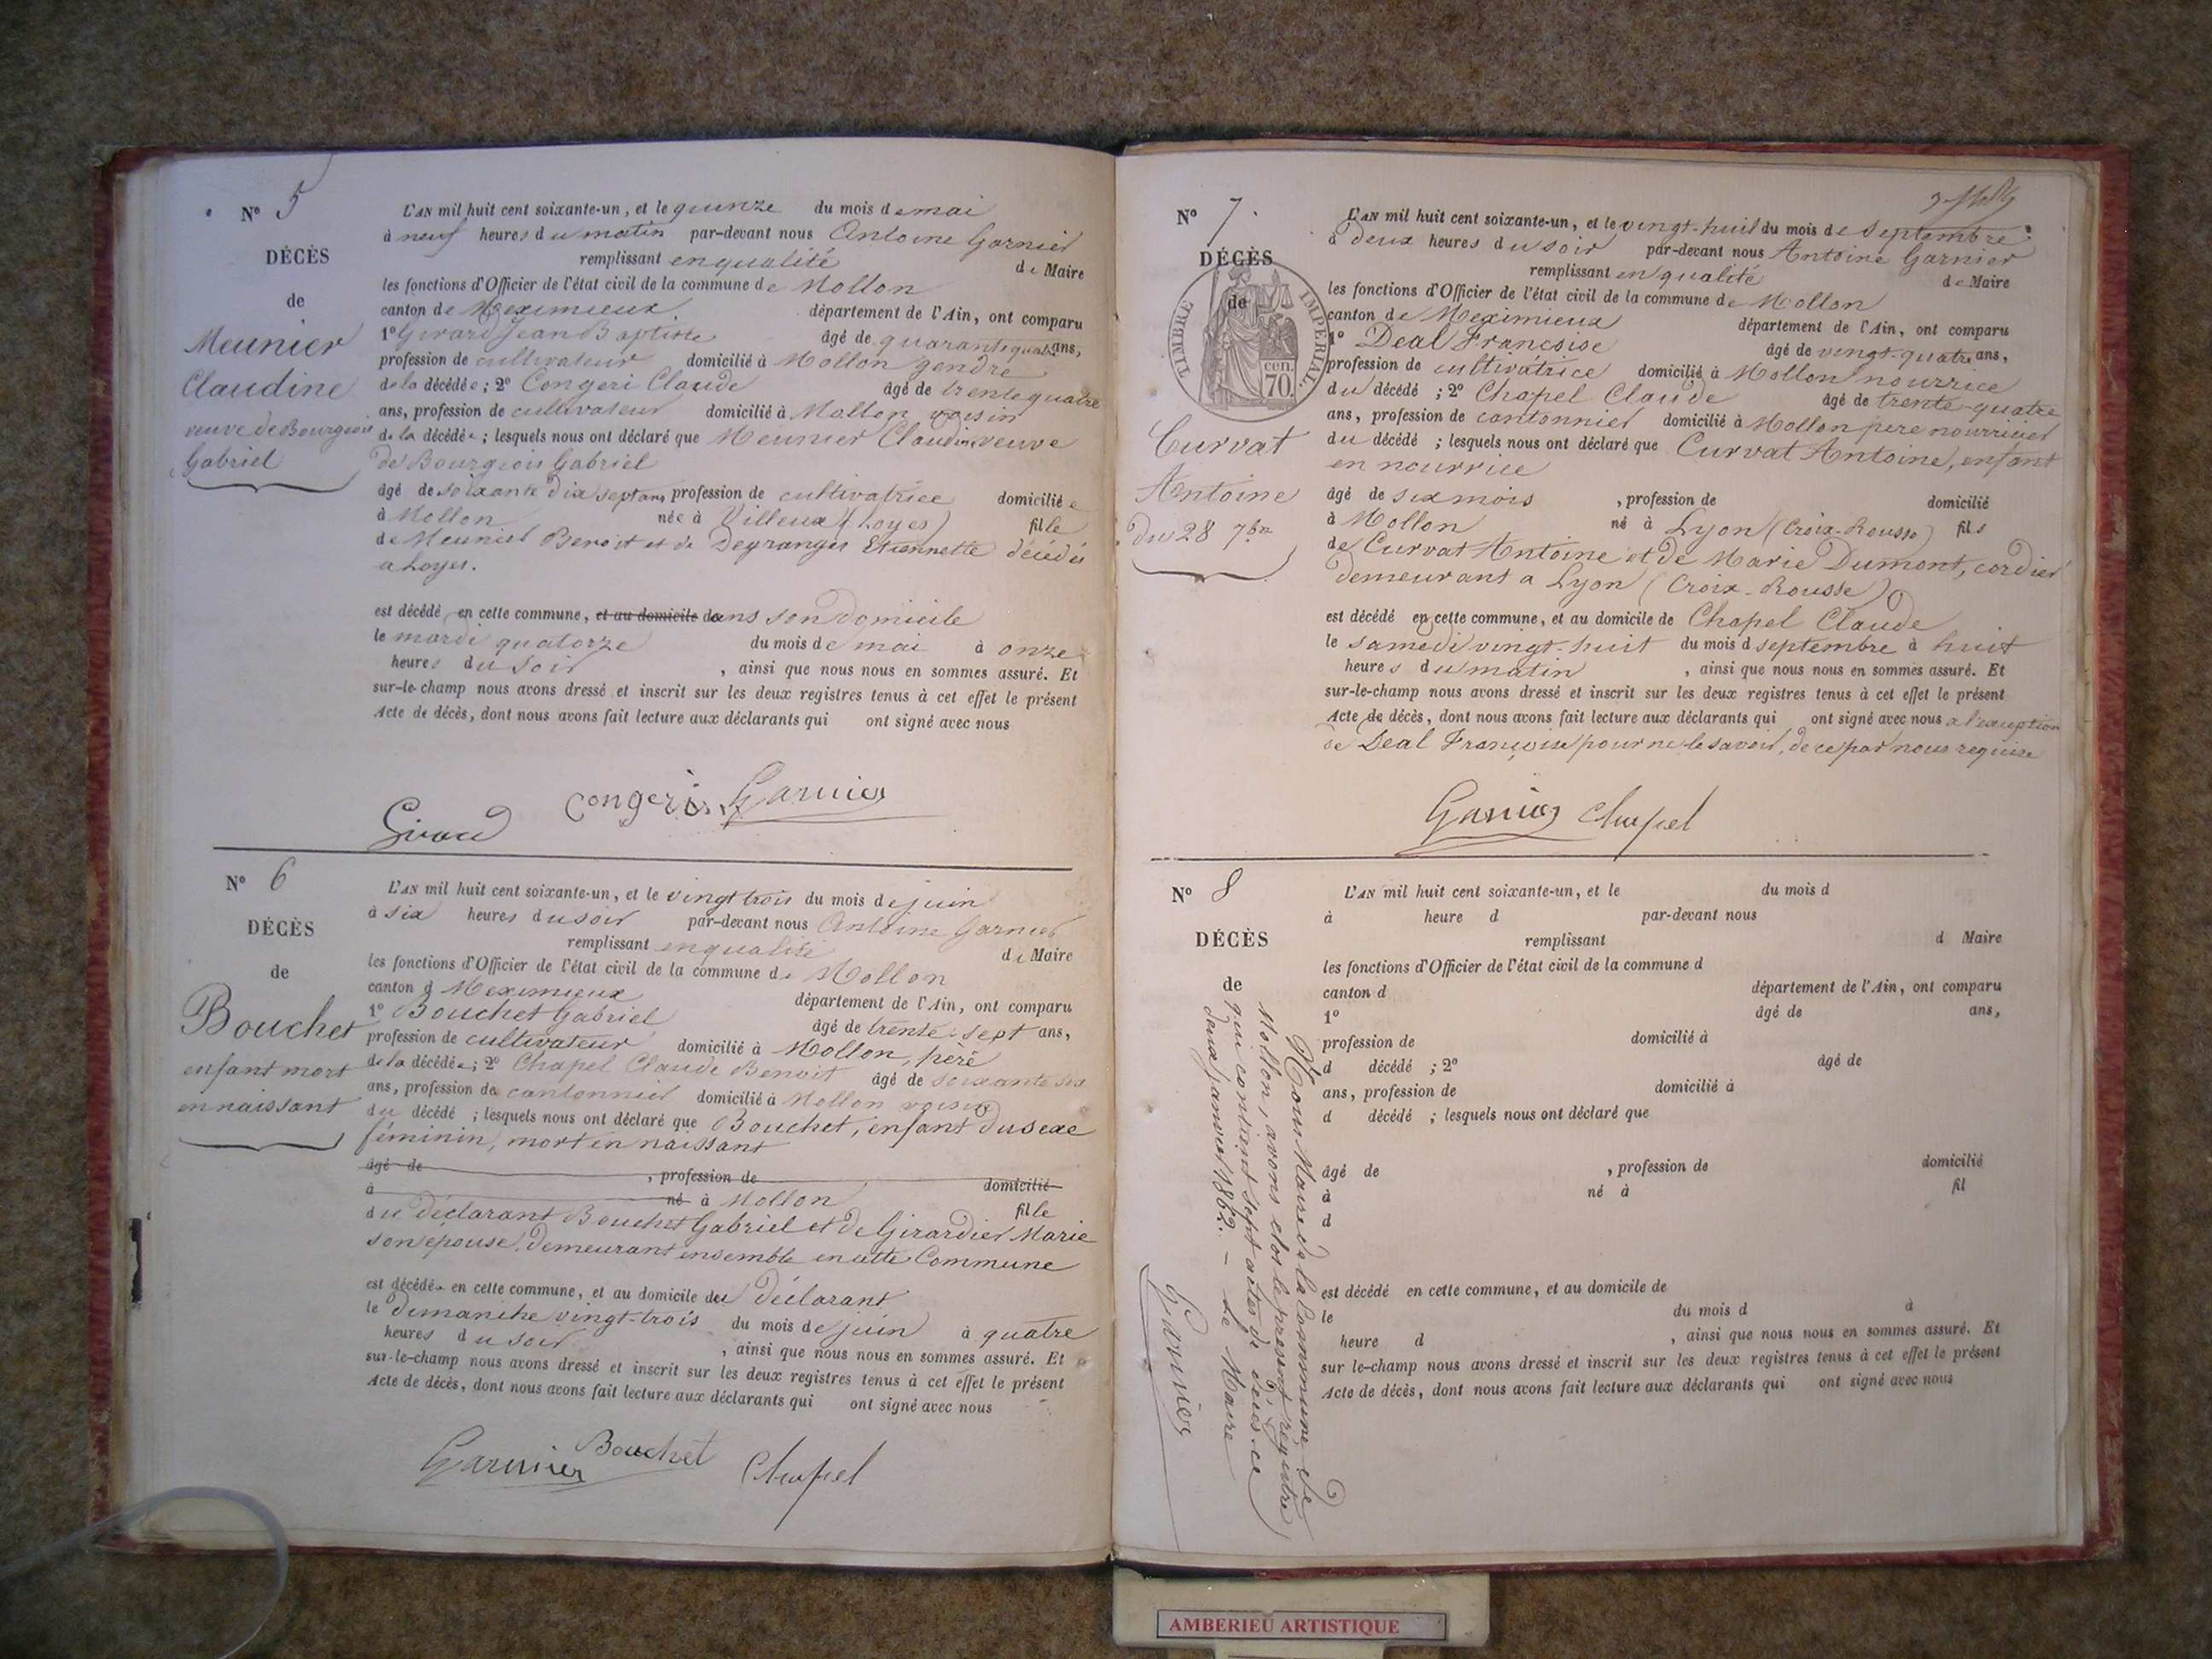 N° 5
DÉCÈS
de
Meunier
Claudine
veuve de Bourgeois
Gabriel
L'AN mil huit cent soixante-un, et le quinze du mois de mai
à neuf heures du matin par-devant nous Antoine Garnier
remplissant en qualité de Maire
les fonctions d'Officier de l'état civil de la commune de Mollon
canton de Meximieux département de l'Ain, ont comparu
1° Girard Jean Baptiste âgé de quarante quatre ans,
profession de cultivateur domicilié à Mollon gendre
de la décédée; 2° Congeri Claude âgé de trente quatre
ans, profession de cultivateur domicilié à Mollon voisin
de la décédée; lesquels nous ont déclaré que Meunier Claudine veuve
de Bourgeois Gabriel
âgé de soixante dix sept ans profession de cultivatrice domiciliée
à Mollon née à Villeux (Loyes) fille
de Meunier Benoit et de Degranges Etiennette décédés
a Loyes.
est décédé en cette commune, et au domicile dans son domicile
le mardi quatorze du mois de mai à onze
heures du soir, ainsi que nous nous en sommes assuré. Et
sur-le-champ nous avons dressé et inscrit sur les deux registres tenus à cet effet le présent
Acte de décès, dont nous avons fait lecture aux déclarants qui ont signé avec nous
Girard Congeri Garnier
N° 6
DÉCÈS
de
Bouchet
enfant mort
en naissant
L'AN mil huit cent soixante-un, et le vingt trois du mois de juin
à six heures du soir par-devant nous Antoine Garnier
remplissant en qualité de Maire
les fonctions d'Officier de l'état civil de la commune de Mollon
canton d Meximieux département de l'Ain, ont comparu
1° Bouchet Gabriel âgé de trente-sept ans,
profession de cultivateur domicilié à Mollon, père
de la décédée; 2° Chapel Claude Benoit âgé de soixante six
ans, profession de cantonnier domicilié à Mollon voisin
du décédé; lesquels nous ont déclaré que Bouchet, enfant du sexe
féminin, mort en naissant
âgé de, profession de domicilié
à né à Mollon fille
du déclarant Bouchet Gabriel et de Girardier Marie
son épouse, demeurant ensemble en cette Commune
est décédée en cette commune, et au domicile du Déclarant
le dimanche vingt-trois du mois de juin à quatre
heures du soir, ainsi que nous nous en sommes assuré. Et
sur-le-champ nous avons dressé et inscrit sur les deux registres tenus à cet effet le présent
Acte de décès, dont nous avons fait lecture aux déclarants qui ont signé avec nous
Garnier Bouchet Chapel
N° 7.
DÉCÈS
de
TIMBRE IMPÉRIAL.
cen.
70.
Curvat
Antoine
Du 28 7bre
L'AN mil huit cent soixante-un, et le vingt-huit du mois de Septembre
à deux heures du soir par-devant nous Antoine Garnier
remplissant en qualité de Maire
les fonctions d'Officier de l'état civil de la commune de Mollon
canton de Meximieux département de l'Ain, ont comparu
1° Deal Francoise âgé de vingt-quatre ans,
profession de cultivatrice domicilié à Mollon nourrice
du décédé; 2° Chapel Claude âgé de trente-quatre
ans, profession de cantonnier domicilié à Mollon père nourricier
du décédé; lesquels nous ont déclaré que Curvat Antoine, enfant
en nourrice
âgé de six mois, profession de domicilié
à Mollon né à Lyon (Croix-Rousse) fils
de Curvat Antoine et de Marie Dumont, cordier
demeurant a Lyon (Croix-Rousse)
est décédé en cette commune, et au domicile de Chapel Claude
le samedi vingt-huit du mois d septembre à huit
heures du matin, ainsi que nous nous en sommes assuré. Et
sur-le-champ nous avons dressé et inscrit sur les deux registres tenus à cet effet le présent
Acte de décès, dont nous avons fait lecture aux déclarants qui ont signé avec nous a l'exception
de Deal Françoise pour ne le savoir, de ce par nous requise
Garnier Chapel
N° 8
DÉCÈS
de
L'AN mil huit cent soixante-un, et le du mois d
à heure d par-devant nous
remplissant d Maire
les fonctions d'Officier de l'état civil de la commune d
canton d département de l'Ain, ont comparu
1° âgé de ans,
profession de domicilié à
d décédé; 2° âgé de
ans, profession de domicilié à
d décédé; lesquels nous ont déclaré que
âgé de, profession de domicilié
à né à fil
d
est décédé en cette commune, et au domicile de
le du mois d à
heure d, ainsi que nous nous en sommes assuré. Et
sur le-champ nous avons dressé et inscrit sur les deux registres tenus à cet effet le présent
Acte de décès, dont nous avons fait lecture aux déclarants qui ont signé avec nous
Nous Maire de la Commune de
Mollon, avons clos le présent registre
qui contient sept actes de décès. ce
deux janvier 1862. - Le Maire
Garnier
AMBERIEU ARTISTIQUE